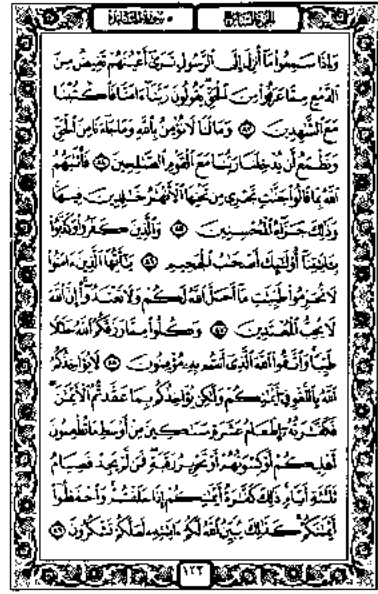 الجزء السابع
سورة المائدة
وَإِذَا سَمِعُوا۟ مَآ أُنزِلَ إِلَى ٱلرَّسُولِ تَرَىٰٓ أَعْيُنَهُمْ تَفِيضُ مِنَ
ٱلدَّمْعِ مِمَّا عَرَفُوا۟ مِنَ ٱلْحَقِّ يَقُولُونَ رَبَّنَآ ءَامَنَّا فَٱكْتُبْنَا
مَعَ ٱلشَّٰهِدِينَ ٨٣ وَمَا لَنَا لَا نُؤْمِنُ بِٱللَّهِ وَمَا جَآءَنَا مِنَ ٱلْحَقِّ
وَنَطْمَعُ أَن يُدْخِلَنَا رَبُّنَا مَعَ ٱلْقَوْمِ ٱلصَّٰلِحِينَ ٨٤ فَأَثَٰبَهُمُ
ٱللَّهُ بِمَا قَالُوا۟ جَنَّٰتٍ تَجْرِى مِن تَحْتِهَا ٱلْأَنْهَٰرُ خَٰلِدِينَ فِيهَا
وَذَٰلِكَ جَزَآءُ ٱلْمُحْسِنِينَ ٨٥ وَٱلَّذِينَ كَفَرُوا۟ وَكَذَّبُوا۟
بِـَٔايَٰتِنَآ أُو۟لَٰٓئِكَ أَصْحَٰبُ ٱلْجَحِيمِ ٨٦ يَٰٓأَيُّهَا ٱلَّذِينَ ءَامَنُوا۟
لَا تُحَرِّمُوا۟ طَيِّبَٰتِ مَآ أَحَلَّ ٱللَّهُ لَكُمْ وَلَا تَعْتَدُوٓا۟ إِنَّ ٱللَّهَ
لَا يُحِبُّ ٱلْمُعْتَدِينَ ٨٧ وَكُلُوا۟ مِمَّا رَزَقَكُمُ ٱللَّهُ حَلَٰلًا
طَيِّبًا وَٱتَّقُوا۟ ٱللَّهَ ٱلَّذِىٓ أَنتُم بِهِۦ مُؤْمِنُونَ ٨٨ لَا يُؤَاخِذُكُمُ
ٱللَّهُ بِٱللَّغْوِ فِىٓ أَيْمَٰنِكُمْ وَلَٰكِن يُؤَاخِذُكُم بِمَا عَقَّدتُّمُ ٱلْأَيْمَٰنَ
فَكَفَّٰرَتُهُۥٓ إِطْعَامُ عَشَرَةِ مَسَٰكِينَ مِنْ أَوْسَطِ مَا تُطْعِمُونَ
أَهْلِيكُمْ أَوْ كِسْوَتُهُمْ أَوْ تَحْرِيرُ رَقَبَةٍ فَمَن لَّمْ يَجِدْ فَصِيَامُ
ثَلَٰثَةِ أَيَّامٍ ذَٰلِكَ كَفَّٰرَةُ أَيْمَٰنِكُمْ إِذَا حَلَفْتُمْ وَٱحْفَظُوٓا۟
أَيْمَٰنَكُمْ كَذَٰلِكَ يُبَيِّنُ ٱللَّهُ لَكُمْ ءَايَٰتِهِۦ لَعَلَّكُمْ تَشْكُرُونَ ٨٩
١٢٢